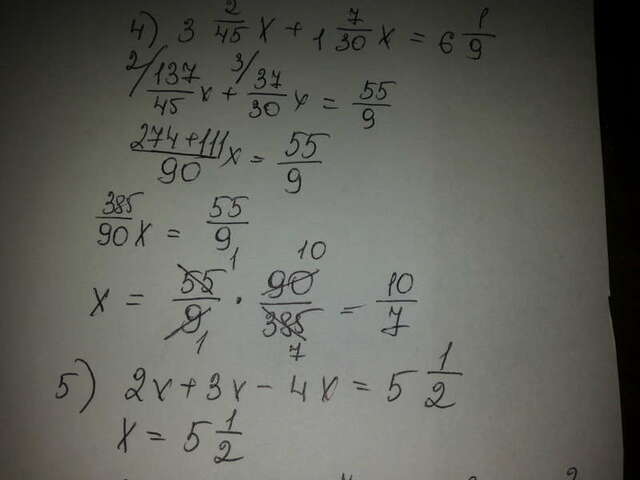 4) 3 2/45 x + 1 7/30 x = 6 1/9
2/ 137/45 x + 3/ 37/30 x = 55/9
274+111/90 x = 55/9
385/90 x = 55/9
x = 55/9 1 1 · 90/385 10 7 = 10/7
5) 2x + 3x - 4x = 5 1/2
x = 5 1/2